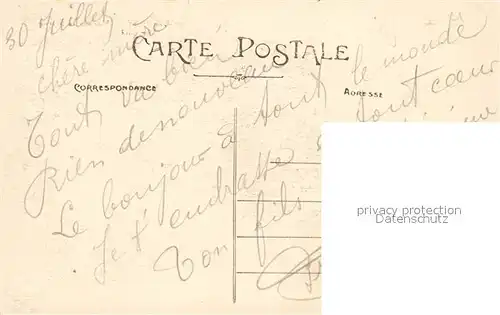 30 Juillet
CARTE POSTALE
CORRESPONDANCE
ADRESSE
Chère mère
Tout va bien
Rien de nouveau
Le bonjour à tout le monde
Je t'embrasse tout cœur
Ton fils
privacy protection
Datenschutz